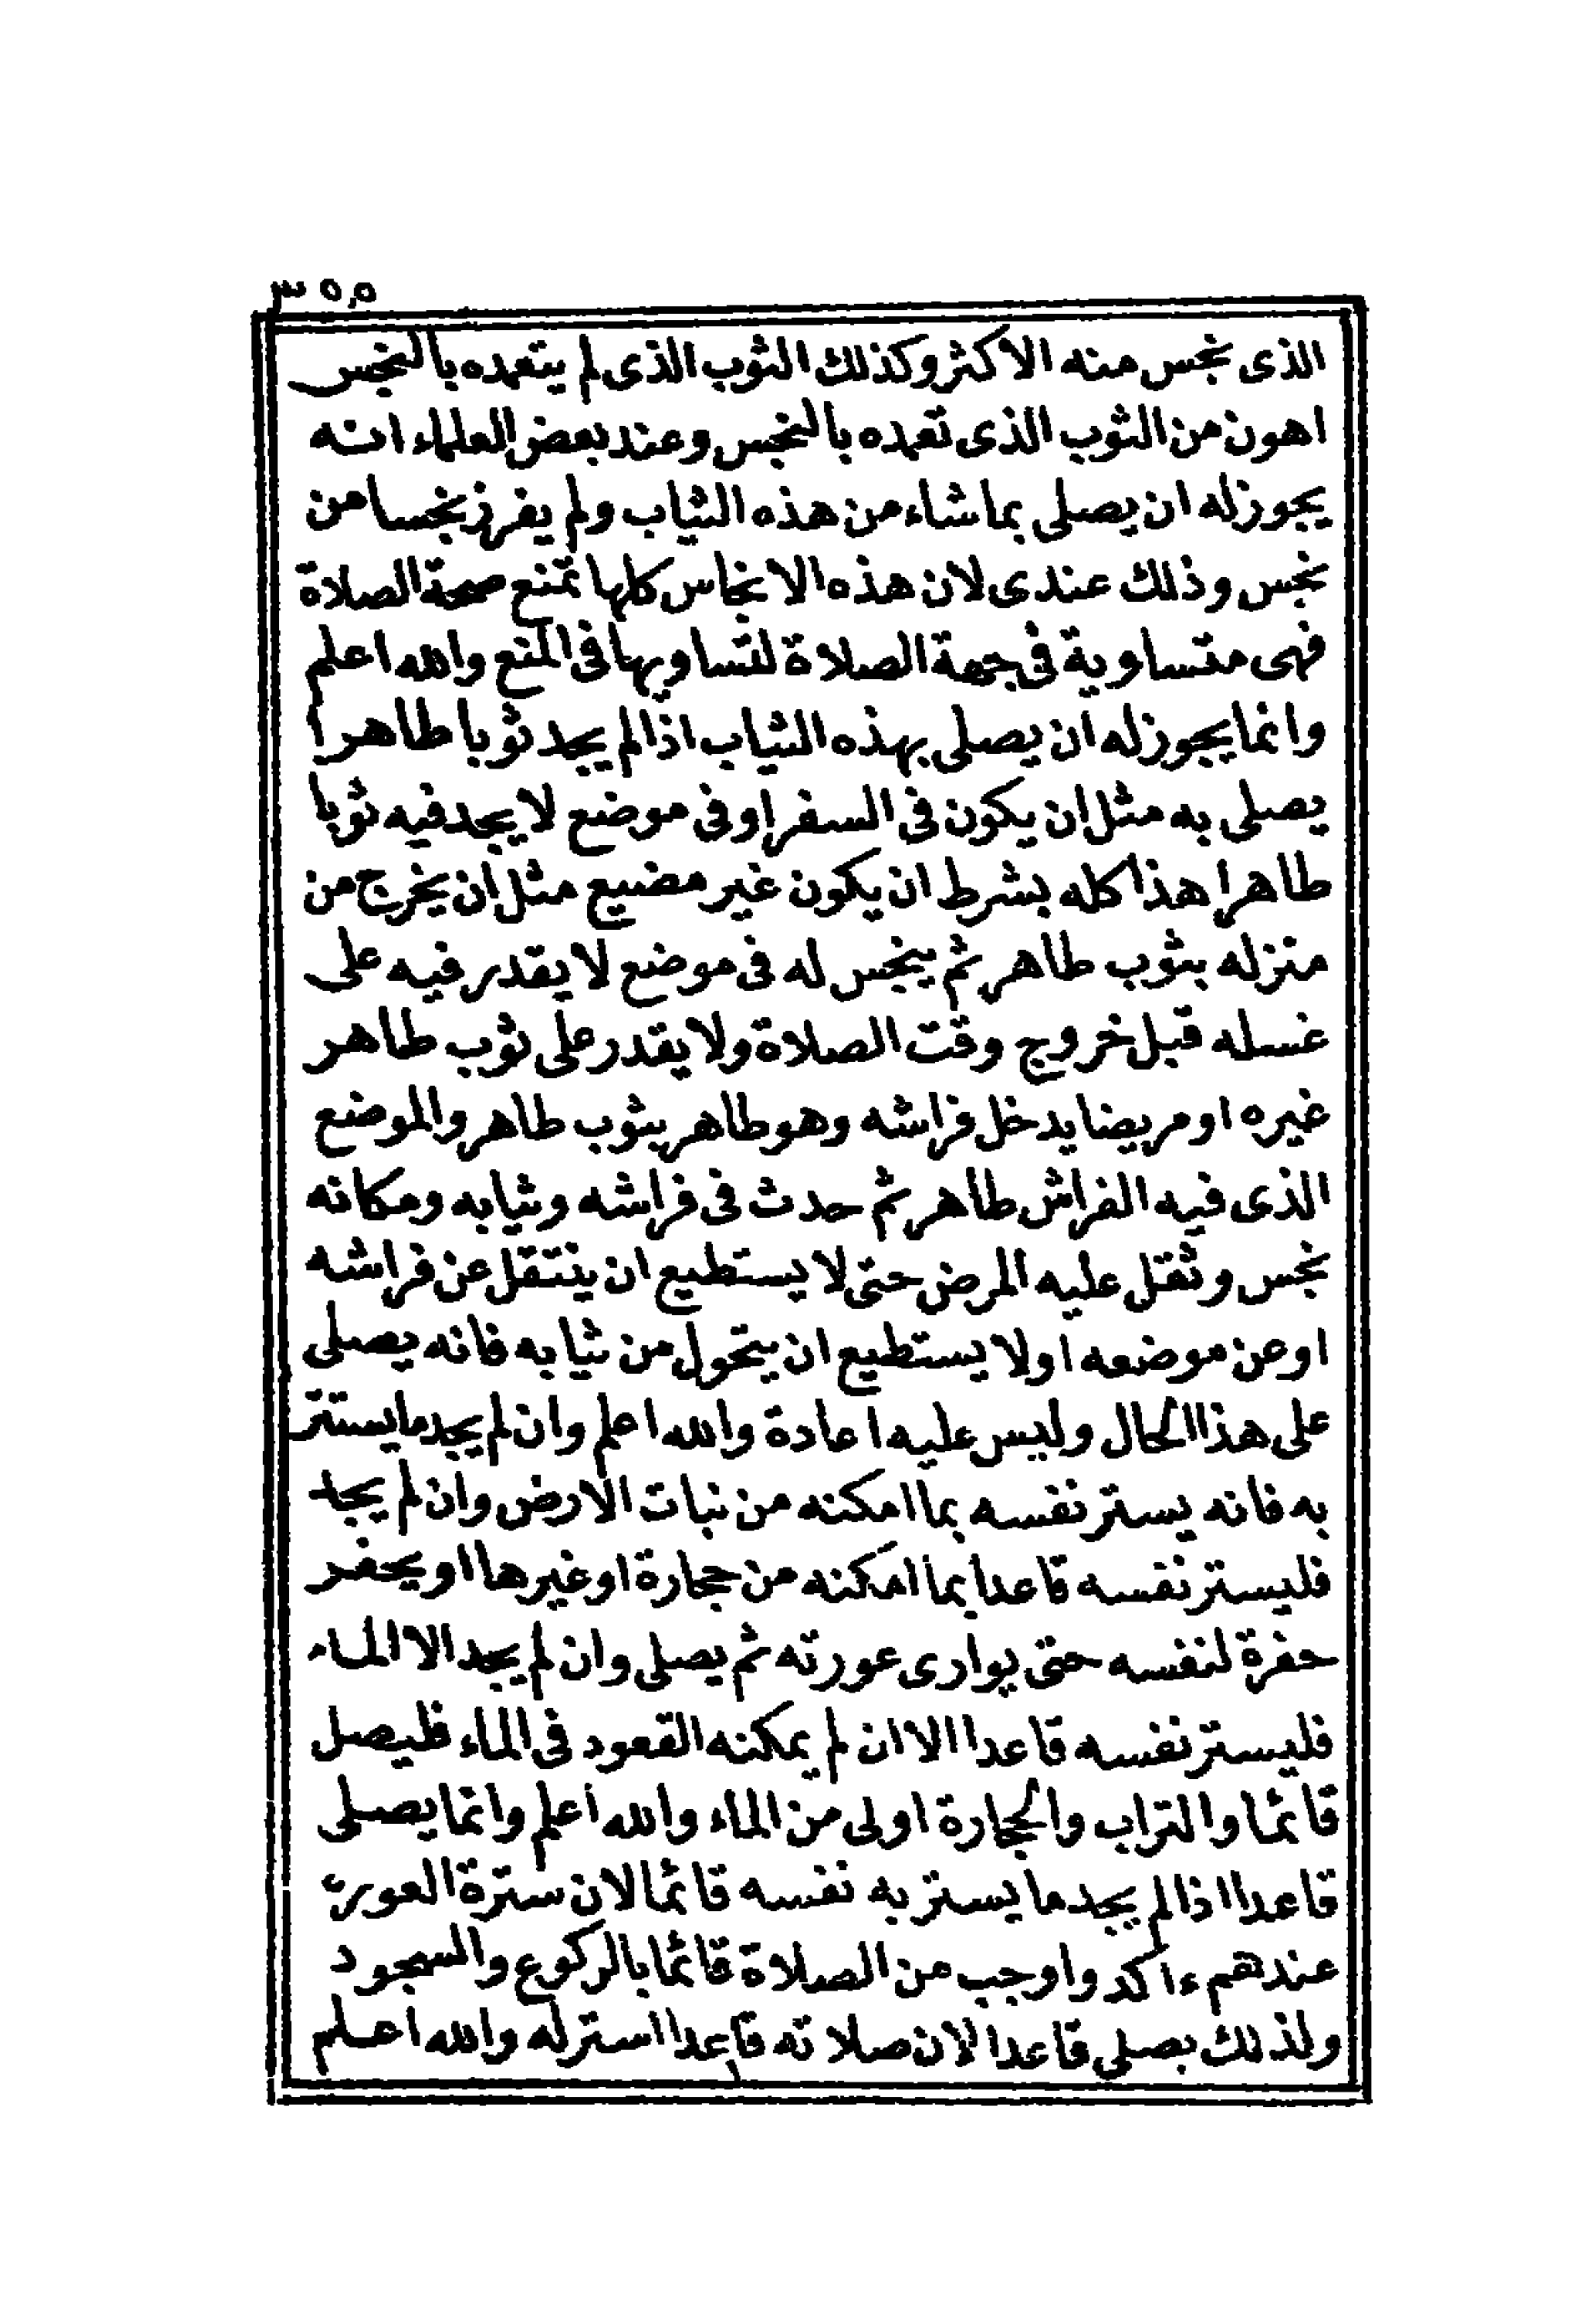 ٣٥٥
الذى نجس منه الاكثر وكذلك الثوب الذى لم يتعمده بالنجس
اهون من الثوب الذى تعمده بالنجس وعند بعض العلماء انه
يجوز له ان يصلى بما شاء من هذه الثياب ولم يفرز نجسا من
نجس وذلك عندى لان هذه الانجاس كلها تمنع صحة الصلاة
فهى متساوية فى جهة الصلاة لتساويها فى المنع والله اعلم
وانما يجوز له ان يصلى بهذه الثياب اذا لم يجد ثوبا طاهرا
يصلى به مثل ان يكون فى السفر او فى موضع لا يجد فيه ثوبا
طاهرا هذا كله بشرط ان يكون غير مضيع مثل ان يخرج من
منزله بثوب طاهر ثم ينجس له فى موضع لا يقدر فيه على
غسله قبل خروج وقت الصلاة ولا يقدر على ثوب طاهر
غيره او مريضا يدخل فراشه وهو طاهر بثوب طاهر والموضع
الذى فيه الفراش طاهر ثم حدث فى فراشه وثيابه ومكانه
نجس وثقل عليه المرض حتى لا يستطيع ان ينتقل عن فراشه
او عن موضعه او لا يستطيع ان يتحول من ثيابه فانه يصلى
على هذا الحال وليس عليه اعادة والله اعلم وان لم يجد ما يستتر
به فانه يستر نفسه بما امكنه من نبات الارض وان لم يجد
فليستر نفسه قاعدا بما امكنه من حجارة او غيرها او يحفر
حفرة لنفسه حتى يوارى عورته ثم يصلى وان لم يجد الا الماء
فليستر نفسه قاعدا الا ان لم يمكنه القعود فى الماء فليصل
قائما والتراب والحجارة اولى من الماء والله اعلم وانما يصلى
قاعدا اذا لم يجد ما يستر به نفسه قائما لان سترة العورة
عندهم ءاكد واوجب من الصلاة قائما بالركوع والسجود
ولذلك يصلى قاعدا لان صلاته قاعدا استر له والله اعلم